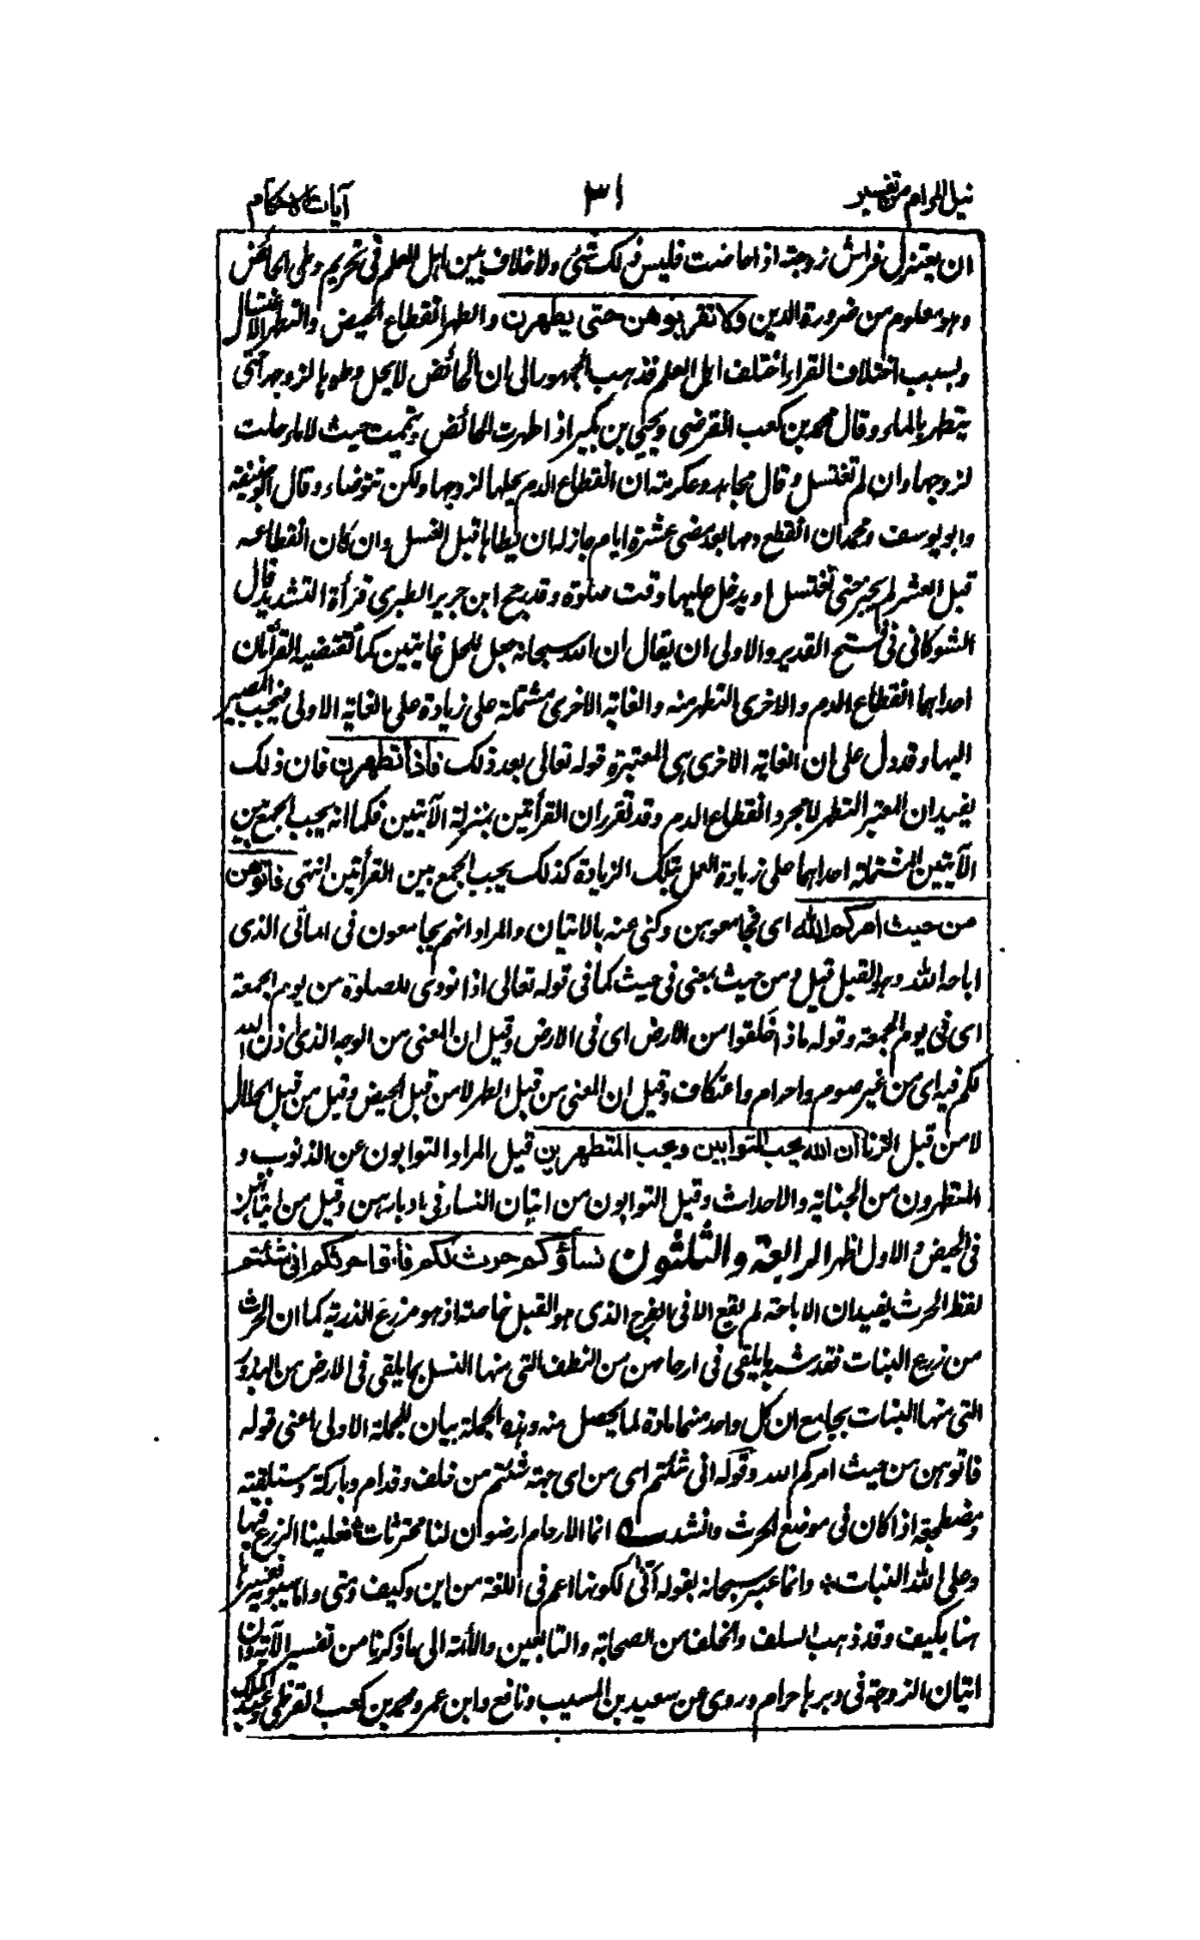 نيل المرام من تفسير
٣١
آيات الاحكام
ان يعتزل فراش زوجته اذا حاضت فليس ذلك بشئ ولا خلاف بين اهل العلم فى تحريم وطى الحائض
وهو معلوم من ضرورة الدين ولا تقربوهن حتى يطهرن والطهر انقطاع الحيض والتطهر الاغتسال
وبسبب اختلاف القراء اختلف اهل العلم فذهب الجمهور الى ان الحائض لا يحل وطوها لزوجها حتى
يتطهر بالماء وقال محمد بن كعب القرضى ويحيى بن بكير اذا طهرت الحائض وتيممت حيث لا ماء حلت
لزوجها وان لم تغتسل وقال مجاهد وعكرمته ان انقطاع الدم يحلها لزوجها ولكن تتوضاء وقال ابو حنيفة
وابو يوسف ومحمد ان انقطع دمها بعد مضى عشرة ايام جاز له ان يطاها قبل الغسل وان كان انقطاعه
قبل العشر لم يجز حتى تغتسل او يدخل عليها وقت صلوة وقد رجح ابن جرير الطبرى قرأة التشديد قال
الشوكانى فى فتح القدير والاولى ان يقال ان الله سبحانه جعل للحل غايتين كما تقتضيه القرأتان
احداهما انقطاع الدم والاخرى التطهر منه والغاية الاخرى مشتملة على زيادة على الغاية الاولى فيجب المصير
اليها وقد دل على ان الغاية الاخرى هى المعتبرة قوله تعالى بعد ذلك فاذا تطهرن فان ذلك
يفيد ان المعتبر التطهر لا مجرد انقطاع الدم وقد تقرر ان القرأتين بمنزلة الآيتين فكما انه يجب الجمع بين
الآيتين المشتملة احداهما على زيادة العمل بتلك الزيادة كذلك يجب الجمع بين القرأتين انتهى فاتوهن
من حيث امركم الله اى فجامعوهن وكنى عنه بالاتيان والمراد انهم يجامعون فى الماتى الذى
اباحه الله وهو القبل قيل ومن حيث بمعنى فى حيث كما فى قوله تعالى اذا نودى للصلوة من يوم الجمعة
اى فى يوم الجمعة وقوله ماذا خلقوا من الارض اى فى الارض وقيل ان المعنى من الوجه الذى اذن الله
لكم فيه اى من غير صوم واحرام واعتكاف وقيل ان المعنى من قبل الطهر لا من قبل الحيض وقيل من قبل الحلال
لا من قبل الزنا ان الله يحب التوابين ويحب المتطهرين قيل المراد التوابون عن الذنوب و
المتطهرون من الجنابة والاحداث وقيل التوابون من اتيان النساء فى ادبارهن وقيل من اتيانهن
فى الحيض والاول اظهر الرابعة والثلثون نساؤكم حرث لكم فأتوا حرثكم انى شئتم
لفظ الحرث يفيد ان الاباحة لم يقع الا فى الفرج الذى هو القبل خاصة اذ هو مزرع الذرية كما ان الحرث
من زرع النبات فقد شبه ما يلقى فى ارحامهن من النطف التى منها النسل بما يلقى فى الارض من البذور
التى منها النبات بجامع ان كل واحد منهما مادة لما يحصل منه وهذه الجملة بيان للجملة الاولى اعنى قوله
فاتوهن من حيث امركم الله وقوله انى شئتم اى من اى جهة شئتم من خلف وقدام وباركة ومستلقية
ومضطجعة اذا كان فى موضع الحرث وانشد انما الارحام ارضون لنا محترثات فعلينا الزرع فيها
وعلى الله النبات وانما عبر سبحانه بقوله أنى لكونها اعم فى اللغة من اين وكيف ومتى واما سيبويه ففسرها
هنا بكيف وقد ذهب السلف والخلف من الصحابة والتابعين والأئمة الى ما ذكرنا من تفسير الآية وان
اتيان الزوجة فى دبرها حرام وروى عن سعيد بن المسيب ونافع وابن عمر ومحمد بن كعب القرظى وعبد الملك